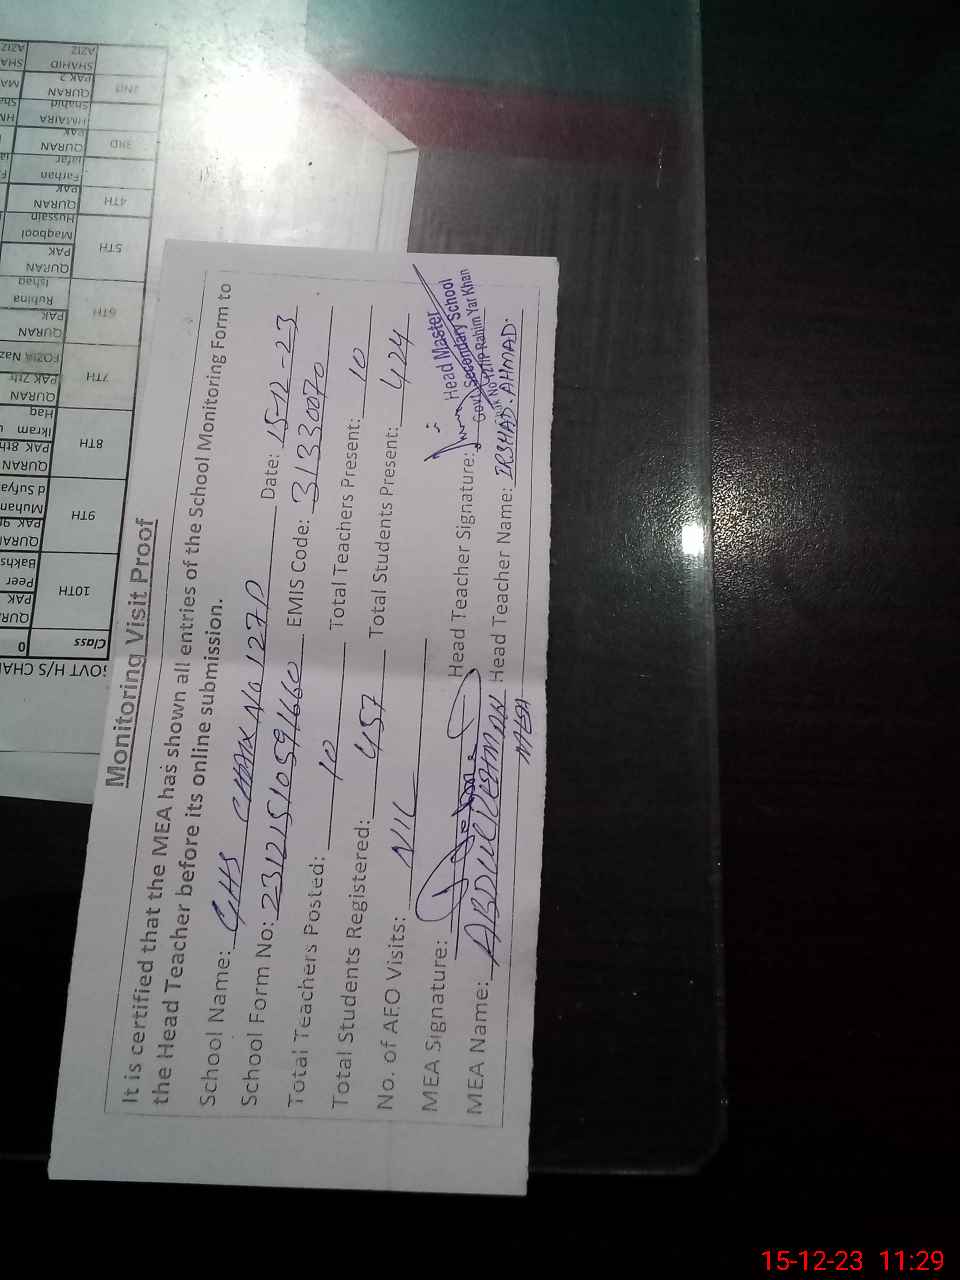 Monitoring Visit Proof
It is certified that the MEA has shown all entries of the School Monitoring Form to
the Head Teacher before its online submission.
School Name: GHS CHAK No 127P Date: 15-12-23
School Form No: 231215105971660 EMIS Code: 31330070
Total Teachers Posted: 10 Total Teachers Present: 10
Total Students Registered: 457 Total Students Present: 424
No. of AEO Visits: NIL
MEA Signature: Head Teacher Signature:
MEA Name: ABDUL REHMAN Head Teacher Name: IRSHAD AHMAD.
MEA
Head Master
Govt. Secondary School
Rahim Yar Khan
GOVT H/S
Class 0
10TH QURAN PAK Peer Bakhsh
9TH QURAN PAK Muhammad Sufyan
8TH QURAN PAK 8th Ikram Haq
7TH QURAN PAK 7th FOZIA Naz
6TH QURAN PAK Rubina Ishaq
5TH QURAN PAK Maqbool Hussain
4TH QURAN PAK Farhan Jafar
3RD QURAN PAK HMAIRA Shahid
2ND QURAN PAK 2 SHAHID AZIZ
15-12-23 11:29